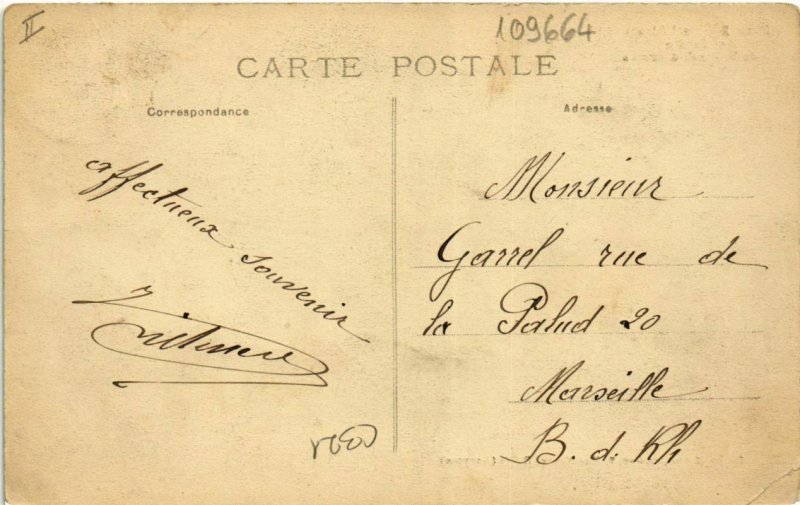 II
109664
CARTE POSTALE
Correspondance
Adresse
affectueux souvenir
Monsieur
Garrel rue de
la Palud 20
Marseille
B. d. Rh